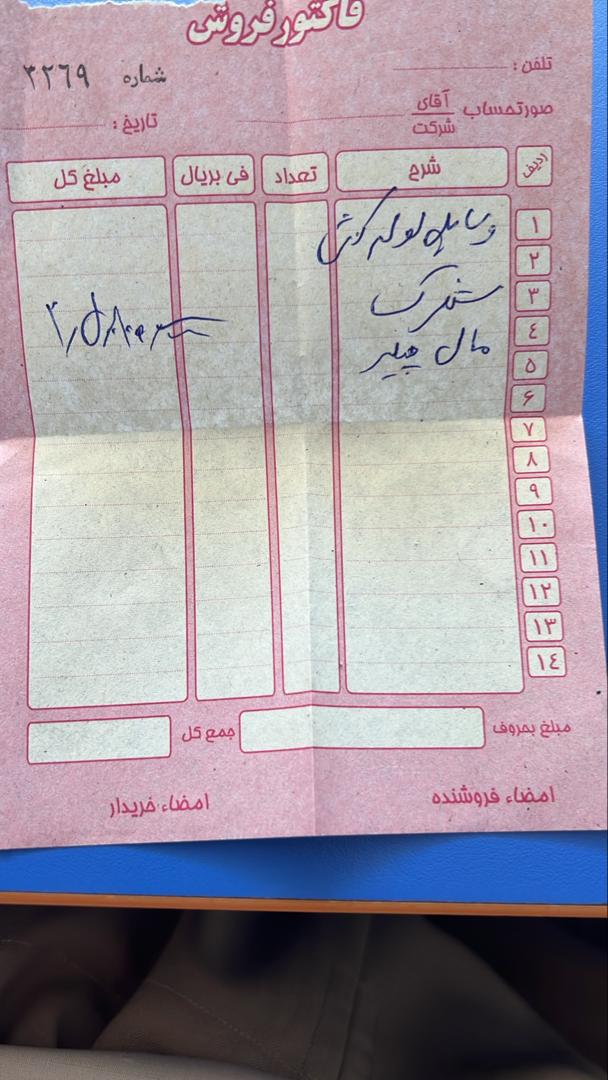 فاکتور فروش
شماره ۳۲۶۹
تلفن :
صورتحساب آقای شرکت
تاریخ :
ردیف شرح تعداد فی بریال مبلغ کل
۱ وسایل لوله کشی
۲
۳ شهرک
٤
۵ مال
۶
۷
۸
۹
۱۰
۱۱
۱۲
۱۳
۱٤
مبلغ بحروف جمع کل
امضاء فروشنده امضاء خریدار